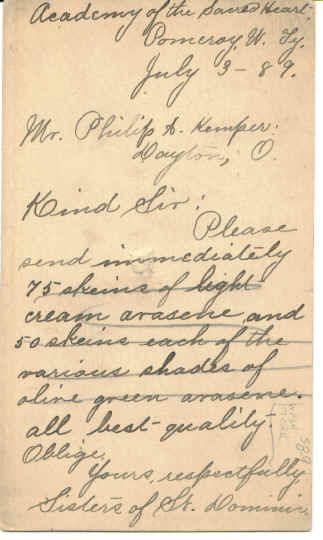 Academy of the Sacred Heart.
Pomeroy, W. Ty.
July 3 - 89.
Mr. Philip A. Kemper:
Dayton, O.
Kind Sir:
Please
send immediately
75 skeins of light
cream arasene, and
50 skeins each of the
various shades of
olive green arasene.
all best-quality.
Oblige,
Yours respectfully,
Sisters of St. Dominic